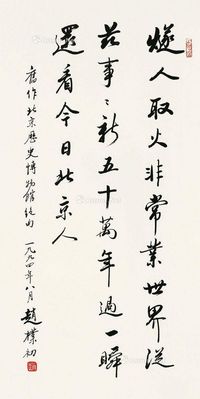 燧人取火非常業世界從
茲事〻新五十萬年過一瞬
還看今日北京人
舊作北京歷史博物館絕句 一九九四年八月 趙樸初